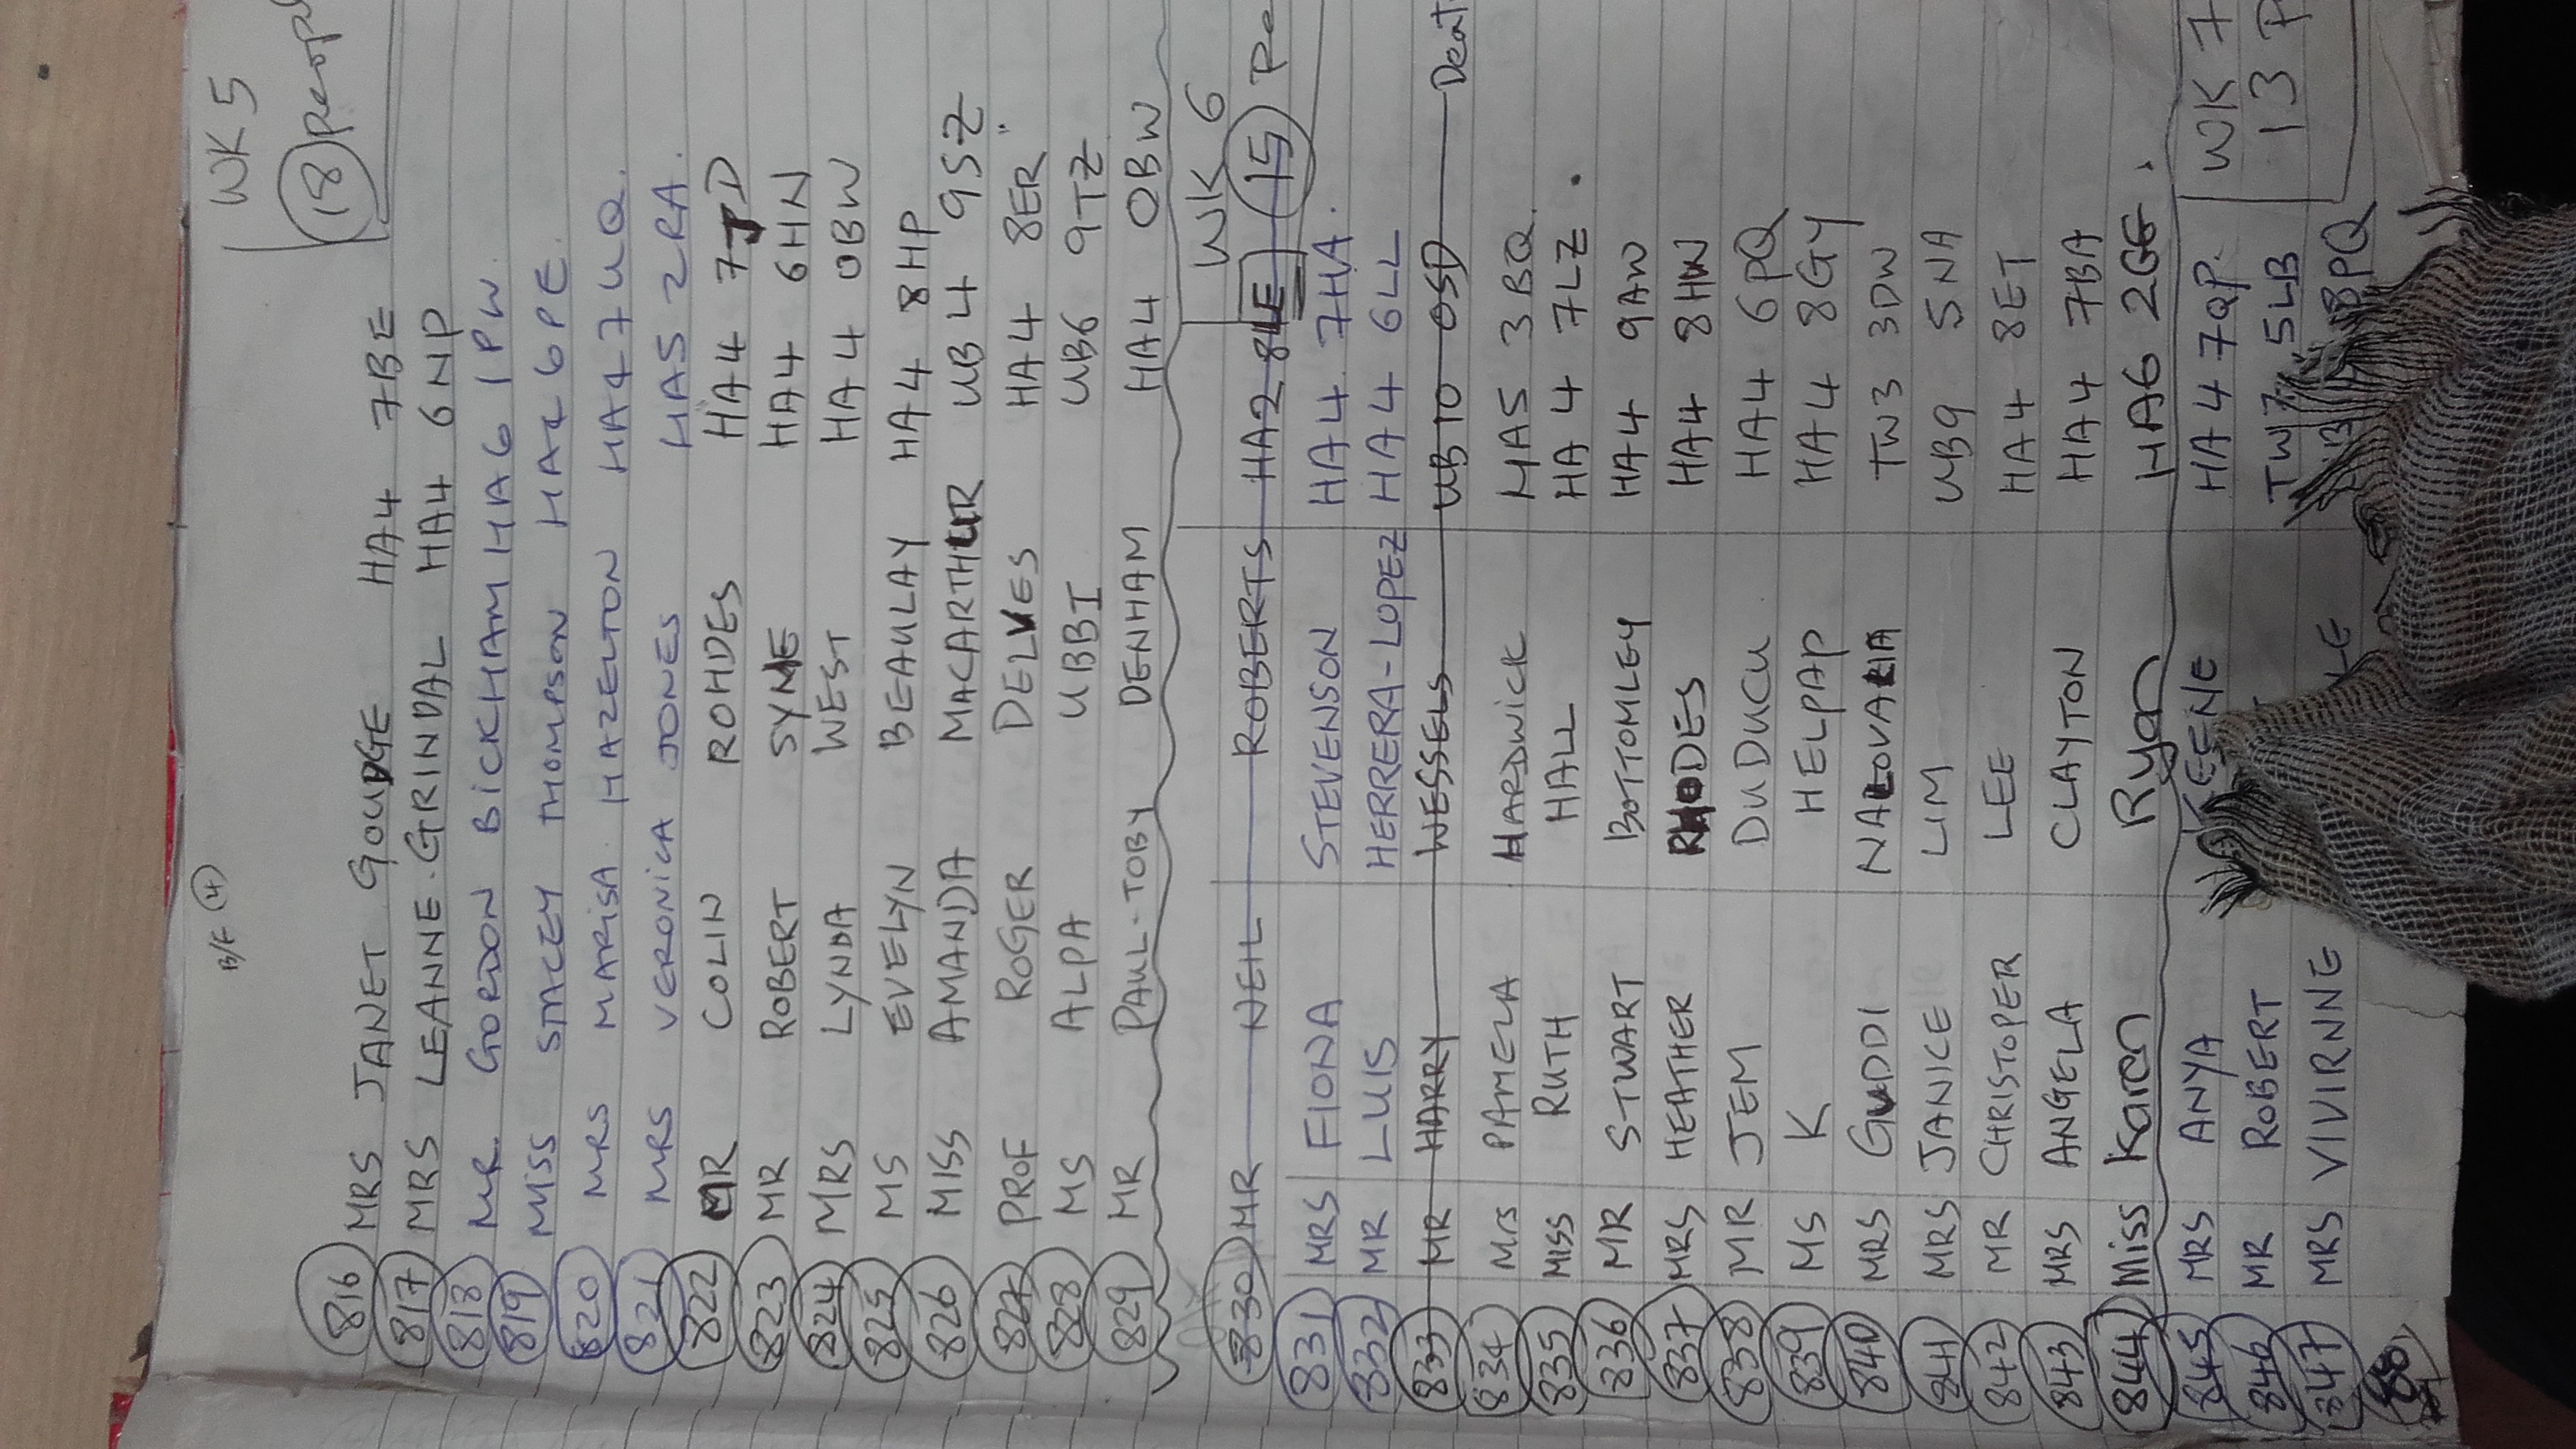 B/F 4
WK 5
18 peopl
816 MRS JANET GOUDGE HA4 7BE
817 MRS LEANNE GRINDAL HA4 6NP
818 MR. GORDON BICKHAM HA6 1PW.
819 MISS STACEY THOMPSON HA4 6PE.
820 MRS MARISA HAZELTON HA4 7UQ.
821 MRS VERONICA JONES HA5 2RA.
822 MR COLIN ROHDES HA4 7JD
823 MR ROBERT SYME HA4 6HN
824 MRS LYNDA WEST HA4 0BW
825 MS EVELYN BEAULAY HA4 8HP
826 MISS AMANDA MACARTHUR UB4 9SZ
827 PROF ROGER DELVES HA4 8ER
828 MS ALPA UBBI UB6 9TZ
829 MR PAUL-TOBY DENHAM HA4 0BW
WK 6
830 MR NEIL ROBERTS HA2 8LE 15 Pe
831 MRS FIONA STEVENSON HA4 7HA.
832 MR LUIS HERRERA-LOPEZ HA4 6LL
833 MR HARRY WESSELS UB10 0SD Deat
834 Mrs PAMELA HARDWICK HA5 3BQ.
835 MISS RUTH HALL HA4 7LZ.
836 MR STWART BOTTOMLEY HA4 9AW
837 MRS HEATHER RHODES HA4 8HW
838 MR JEM DUDUCU HA4 6PQ
839 MS K HELPAP HA4 8GY
840 MRS GUDDI TW3 3DW
841 MRS JANICE LIM UB9 5NA
842 MR CHRISTOPER LEE HA4 8ET
843 MRS ANGELA CLAYTON HA4 7BA
844 Miss Karen Ryan HA6 2GG.
845 MRS ANYA KEENE HA4 7QP. WK 7
846 MR ROBERT TW7 5LB 13 P
847 MRS VIVIRNNE LE 8PQ